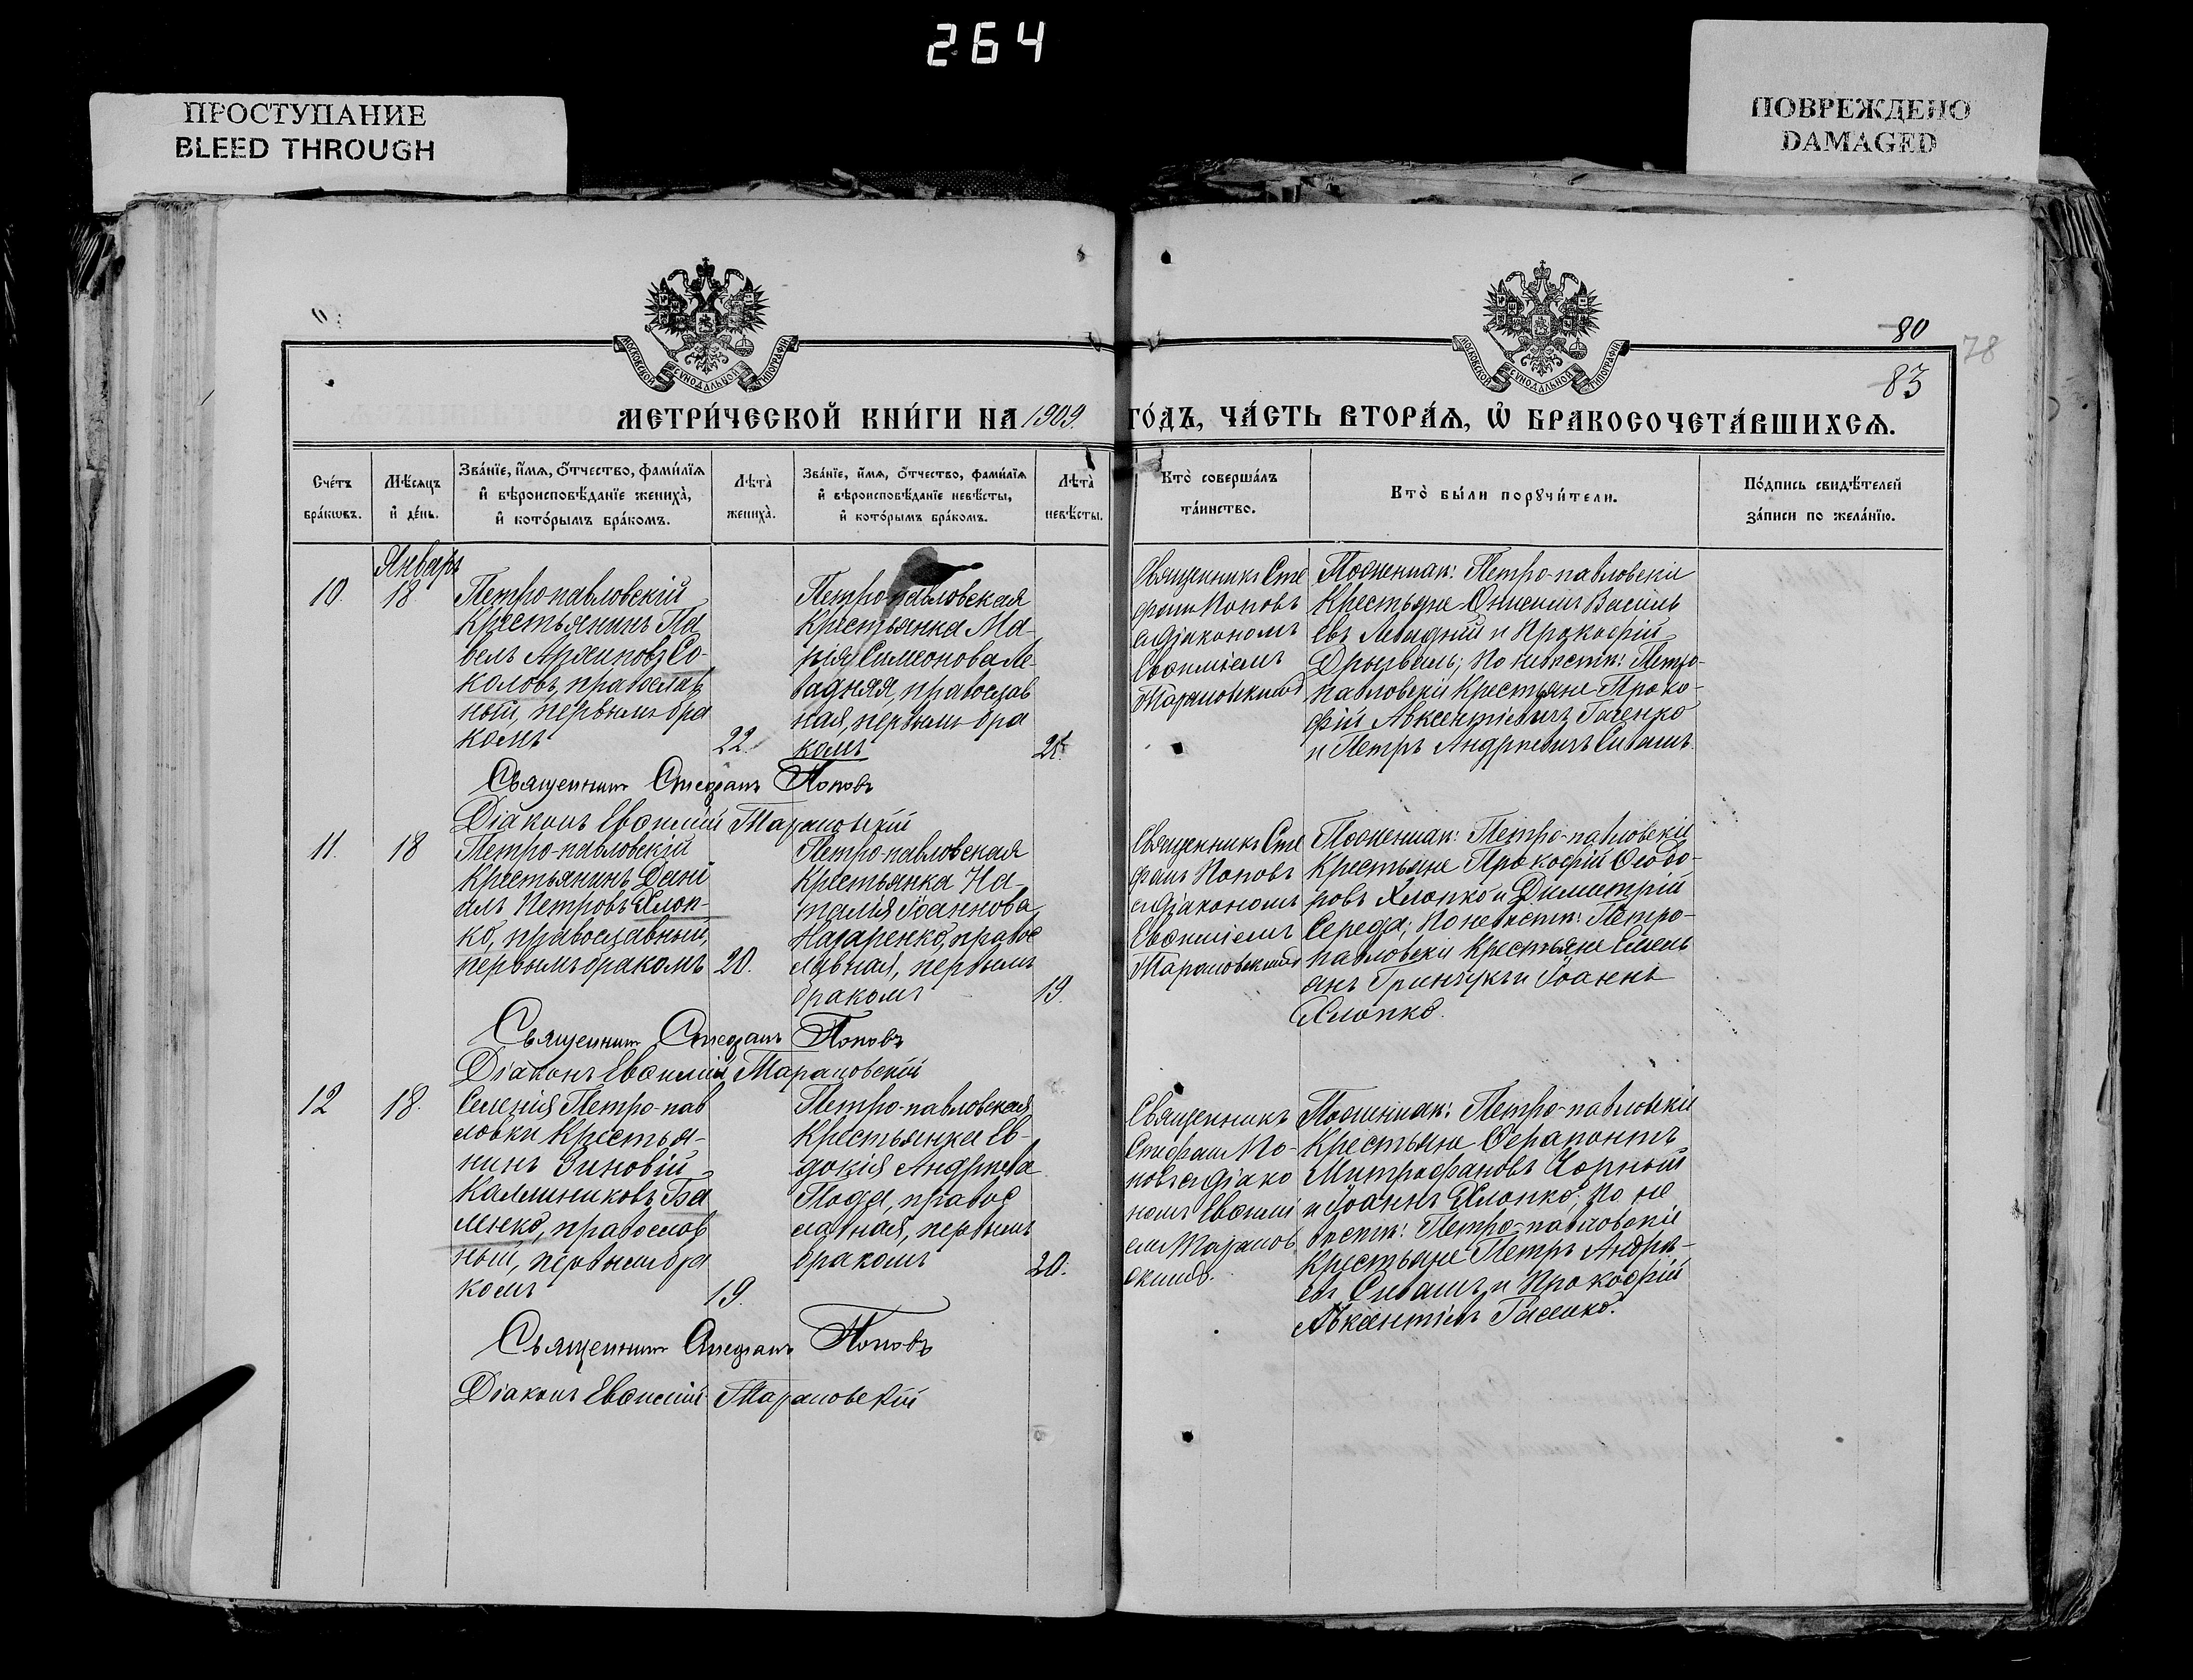 264
ПРОСТУПАНИЕ
BLEED THROUGH
ПОВРЕЖДЕНО
DAMAGED
МОСКОВСКОЙ СѴНОДАЛЬНОЙ ТИПОГРАФІИ
МОСКОВСКОЙ СѴНОДАЛЬНОЙ ТИПОГРАФІИ
80
78
83
МЕТРИ́ЧЕСКОЙ КНИ́ГИ НА 1909. ГО́ДЪ, ЧА́СТЬ ВТОРА́Ѧ, Ѡ҆ БРАКОСОЧЕТА́ВШИХСѦ.
Сче́тъ бра́кѡвъ.
Мѣ́сяцъ и҆ де́нь.
Зва́нїе, и҆́мѧ, ѻ҆́тчество, фами́лїѧ
и҆ вѣроисповѣ́данїе жениха̀,
и҆ кото́рымъ бра́комъ.
Лѣта̀ жениха̀.
Зва́нїе, и҆́мѧ, ѻ҆́тчество, фами́лїѧ
и҆ вѣроисповѣ́данїе невѣ́сты,
и҆ кото́рымъ бра́комъ.
Лѣта̀ невѣ́сты.
Кто̀ соверша́лъ
та́инство.
Кто̀ бы́ли порꙋчи́тели.
По́дпись свидѣ́телей
за́писи по жела́нїю.
Январь
10. 18
Петро-павловскій
Крестьянинъ Па
велъ Архиповъ Со-
коловъ, православ
ный, первымъ бра
комъ
22.
Петро-павловская
Крестьянка Ма-
рія Симеонова Ле-
вадняя, православ
ная, первымъ бра
комъ
Священникъ Сте
фанъ Поповъ
съ діакономъ
Евѳиміемъ
Тарановскимъ
По женихѣ: Петро-павловскіе
Крестьяне Онисимъ Василь
евъ Левадній и Прокофій
По невѣстѣ: Петро-
павловскіе Крестьяне Проко-
фій Авксентіевичъ Гасенко
и Петръ Андреевичъ Сивашъ.
Священникъ Стефанъ Поповъ
Діаконъ Евѳимій Тарановскій
11. 18
Петро-павловскій
Крестьянинъ Дані
илъ Петровъ Хлоп-
ко, православный,
первымъ бракомъ
20.
Петро-павловская
Крестьянка На-
талія Іоаннова
Назаренко, правос
лавная, первымъ
бракомъ
19.
Священникъ Сте
фанъ Поповъ
съ діакономъ
Евѳиміемъ
Тарановскимъ
По женихѣ: Петро-павловскіе
Крестьяне Прокофій Ѳеодо-
ровъ Хлопко и Димитрій
Середа; По невѣстѣ: Петро-
павловскіе Крестьяне Емель
янъ Гринчукъ и Іоаннъ
Хлопко.
Священникъ Стефанъ Поповъ
Діаконъ Евѳимій Тарановскій
12 18.
Селенія Петро-пав
ловки Крестья-
нинъ Зиновій
Каллиниковъ Ба
православ
ный, первымъ бра
комъ
19.
Петро-павловская
Крестьянка Ев-
докія Андреева
правос
лавная, первымъ
бракомъ
20.
Священникъ
Стефанъ По-
повъ съ діако
номъ Евѳимі
емъ Таранов
скимъ.
По женихѣ: Петро-павловскіе
Крестьяне Ѳерапонтъ
Митрофановъ Чорный
и Іоаннъ Хлопко; По не
вѣстѣ: Петро-павловскіе
Крестьяне Петръ Андре-
евъ Сивашъ и Прокофій
Авксентіевъ Гасенко.
Священникъ Стефанъ Поповъ
Діаконъ Евѳимій Тарановскій